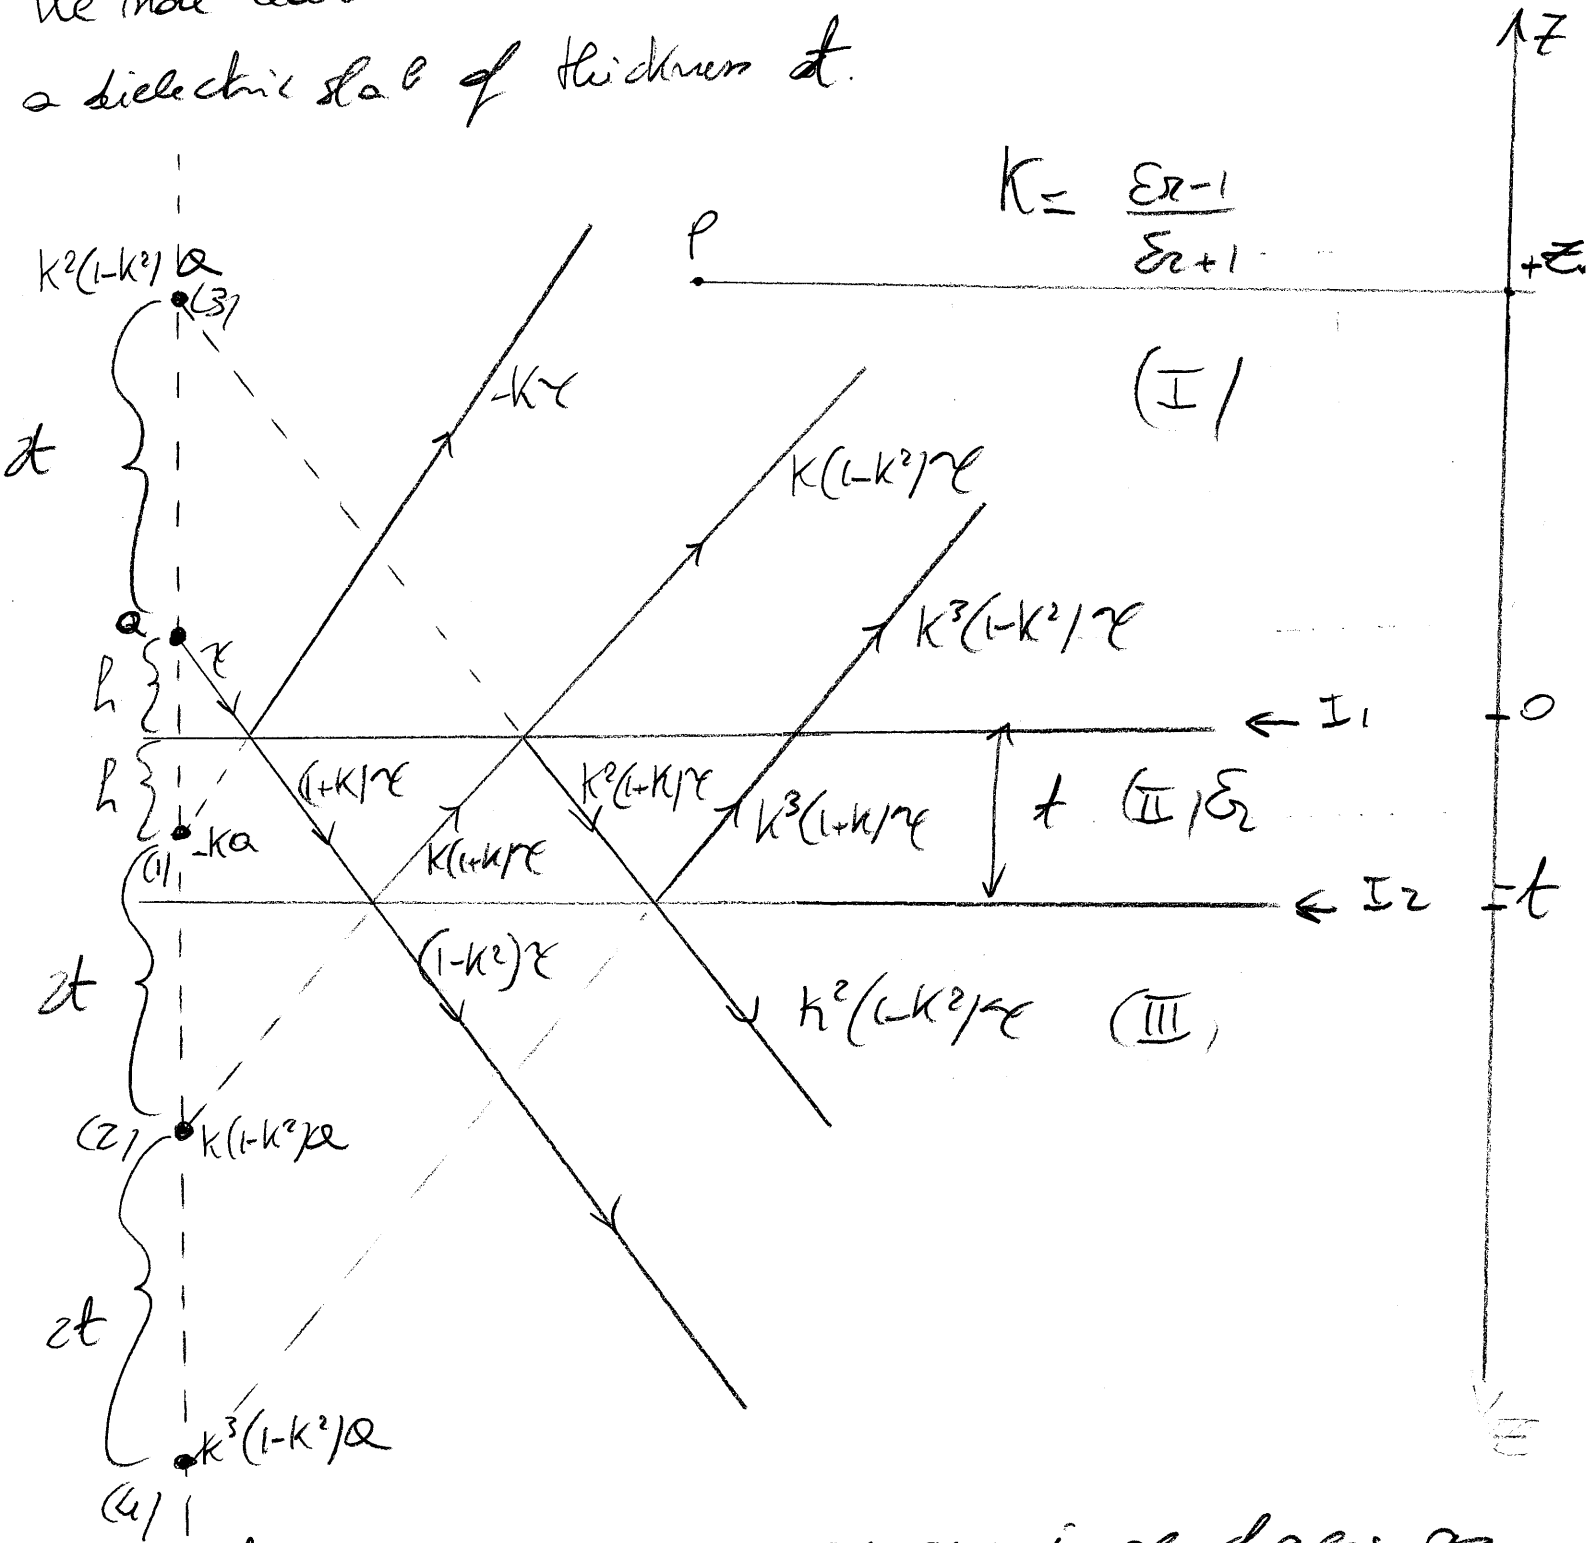 a dielectric slab of thickness t.
Z
K = εr-1 / εr+1
P
+Z.
K²(1-K²) Q
(3)
(I)
-Kψ
2t
K(1-K²)ψ
K³(1-K²)ψ
Q
ψ
h
← I1
0
h
(1+K)ψ
K²(1+K)ψ
K³(1+K)ψ
t
(II) εr
(1) -KQ
K(1+K)ψ
← I2
-t
(1-K²)ψ
2t
K²(1-K²)ψ
(III)
(2)
K(1-K²)Q
2t
K³(1-K²)Q
(4)